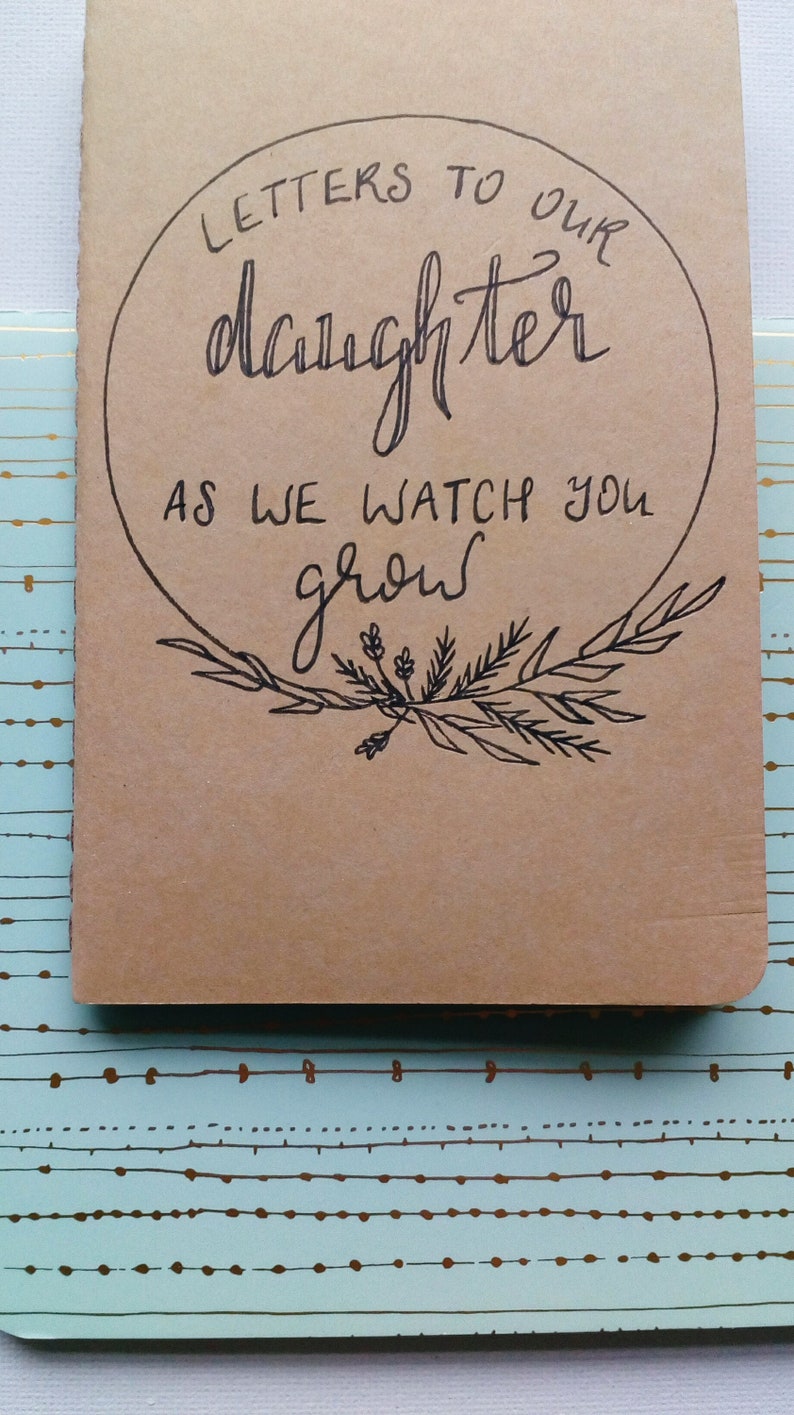 LETTERS TO OUR
daughter
AS WE WATCH YOU
grow